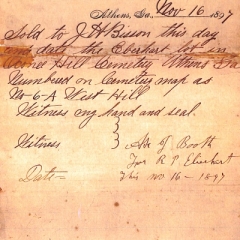 Athens, Ga. Nov 16 1897
Sold to J H Bisson this day
and date the Eberhart lot in
Oconee Hill Cemetery Athens Ga
Numbered on Cemetery map as
No 6-A West Hill
Witness my hand and seal.
Witness
A J Booth
For R P Eberhart
Date= This Nov 16-1897